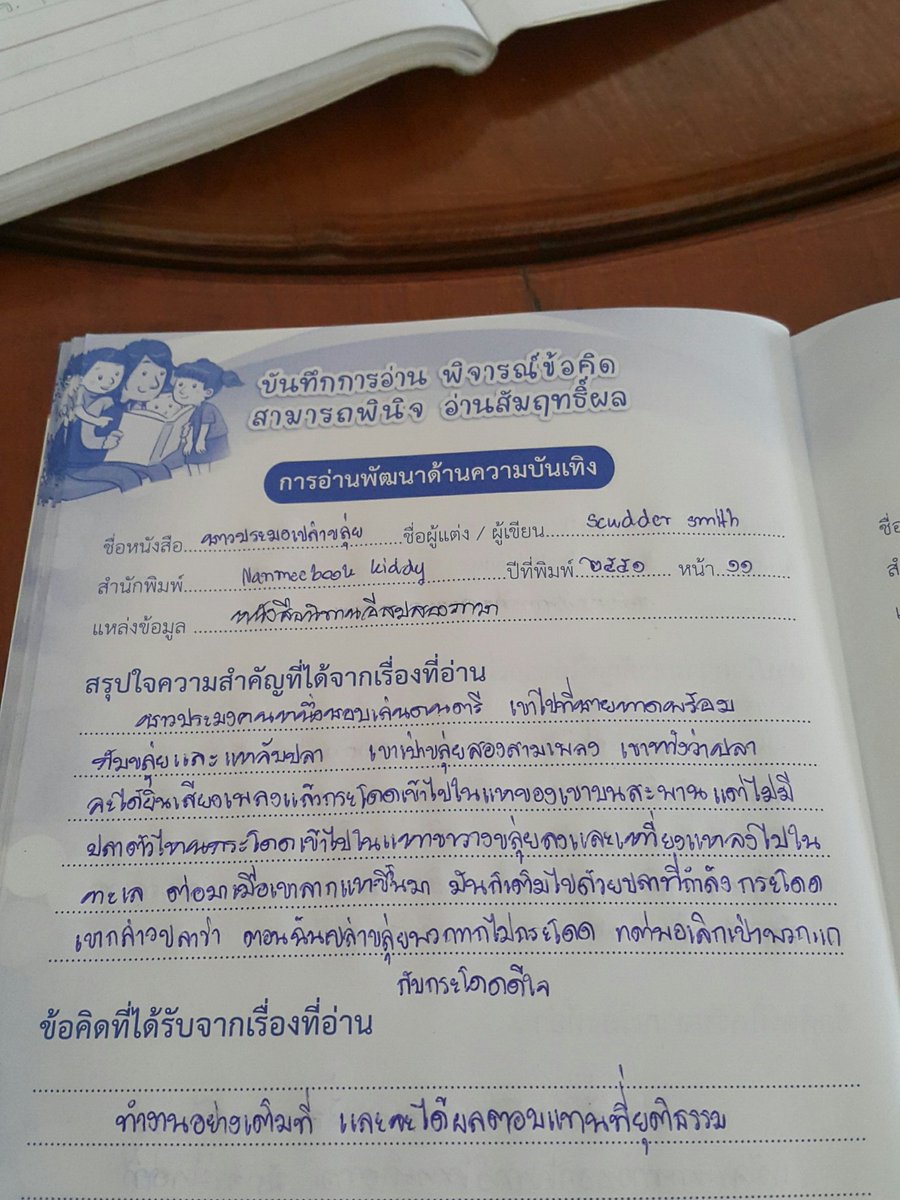 บันทึกการอ่าน พิจารณ์ข้อคิด
สามารถพินิจ อ่านสัมฤทธิ์ผล
การอ่านพัฒนาด้านความบันเทิง
ชื่อหนังสือ ชาวประมงเป่าขลุ่ย ชื่อผู้แต่ง / ผู้เขียน Scudder smith
สำนักพิมพ์ Nanmeebook kiddy ปีที่พิมพ์ ๒๕๕๑ หน้า ๑๑
แหล่งข้อมูล หนังสือนิทานอีสปสองภาษา
สรุปใจความสำคัญที่ได้จากเรื่องที่อ่าน
ชาวประมงคนหนึ่งชอบเล่นดนตรี เขาไปที่ชายหาดพร้อม
กับขลุ่ยและแหจับปลา เขาเป่าขลุ่ยสองสามเพลง เขาหวังว่าปลา
จะได้ยินเสียงเพลงแล้วกระโดดเข้าไปในแหของเขาบนสะพาน แต่ไม่มี
ปลาตัวไหนกระโดดเข้าไปในแหเขาวางขลุ่ยลงและเหวี่ยงแหลงไปใน
ทะเล ต่อมาเมื่อเขาลากแหขึ้นมา มันก็เต็มไปด้วยปลาที่กำลังกระโดด
เขากล่าวปลาว่า ตอนฉันเป่าขลุ่ยพวกแกไม่กระโดด แต่พอเลิกเป่าพวกแก
กับกระโดดดีใจ
ข้อคิดที่ได้รับจากเรื่องที่อ่าน
ทำงานอย่างเต็มที่ และจะได้ผลตอบแทนที่ยุติธรรม